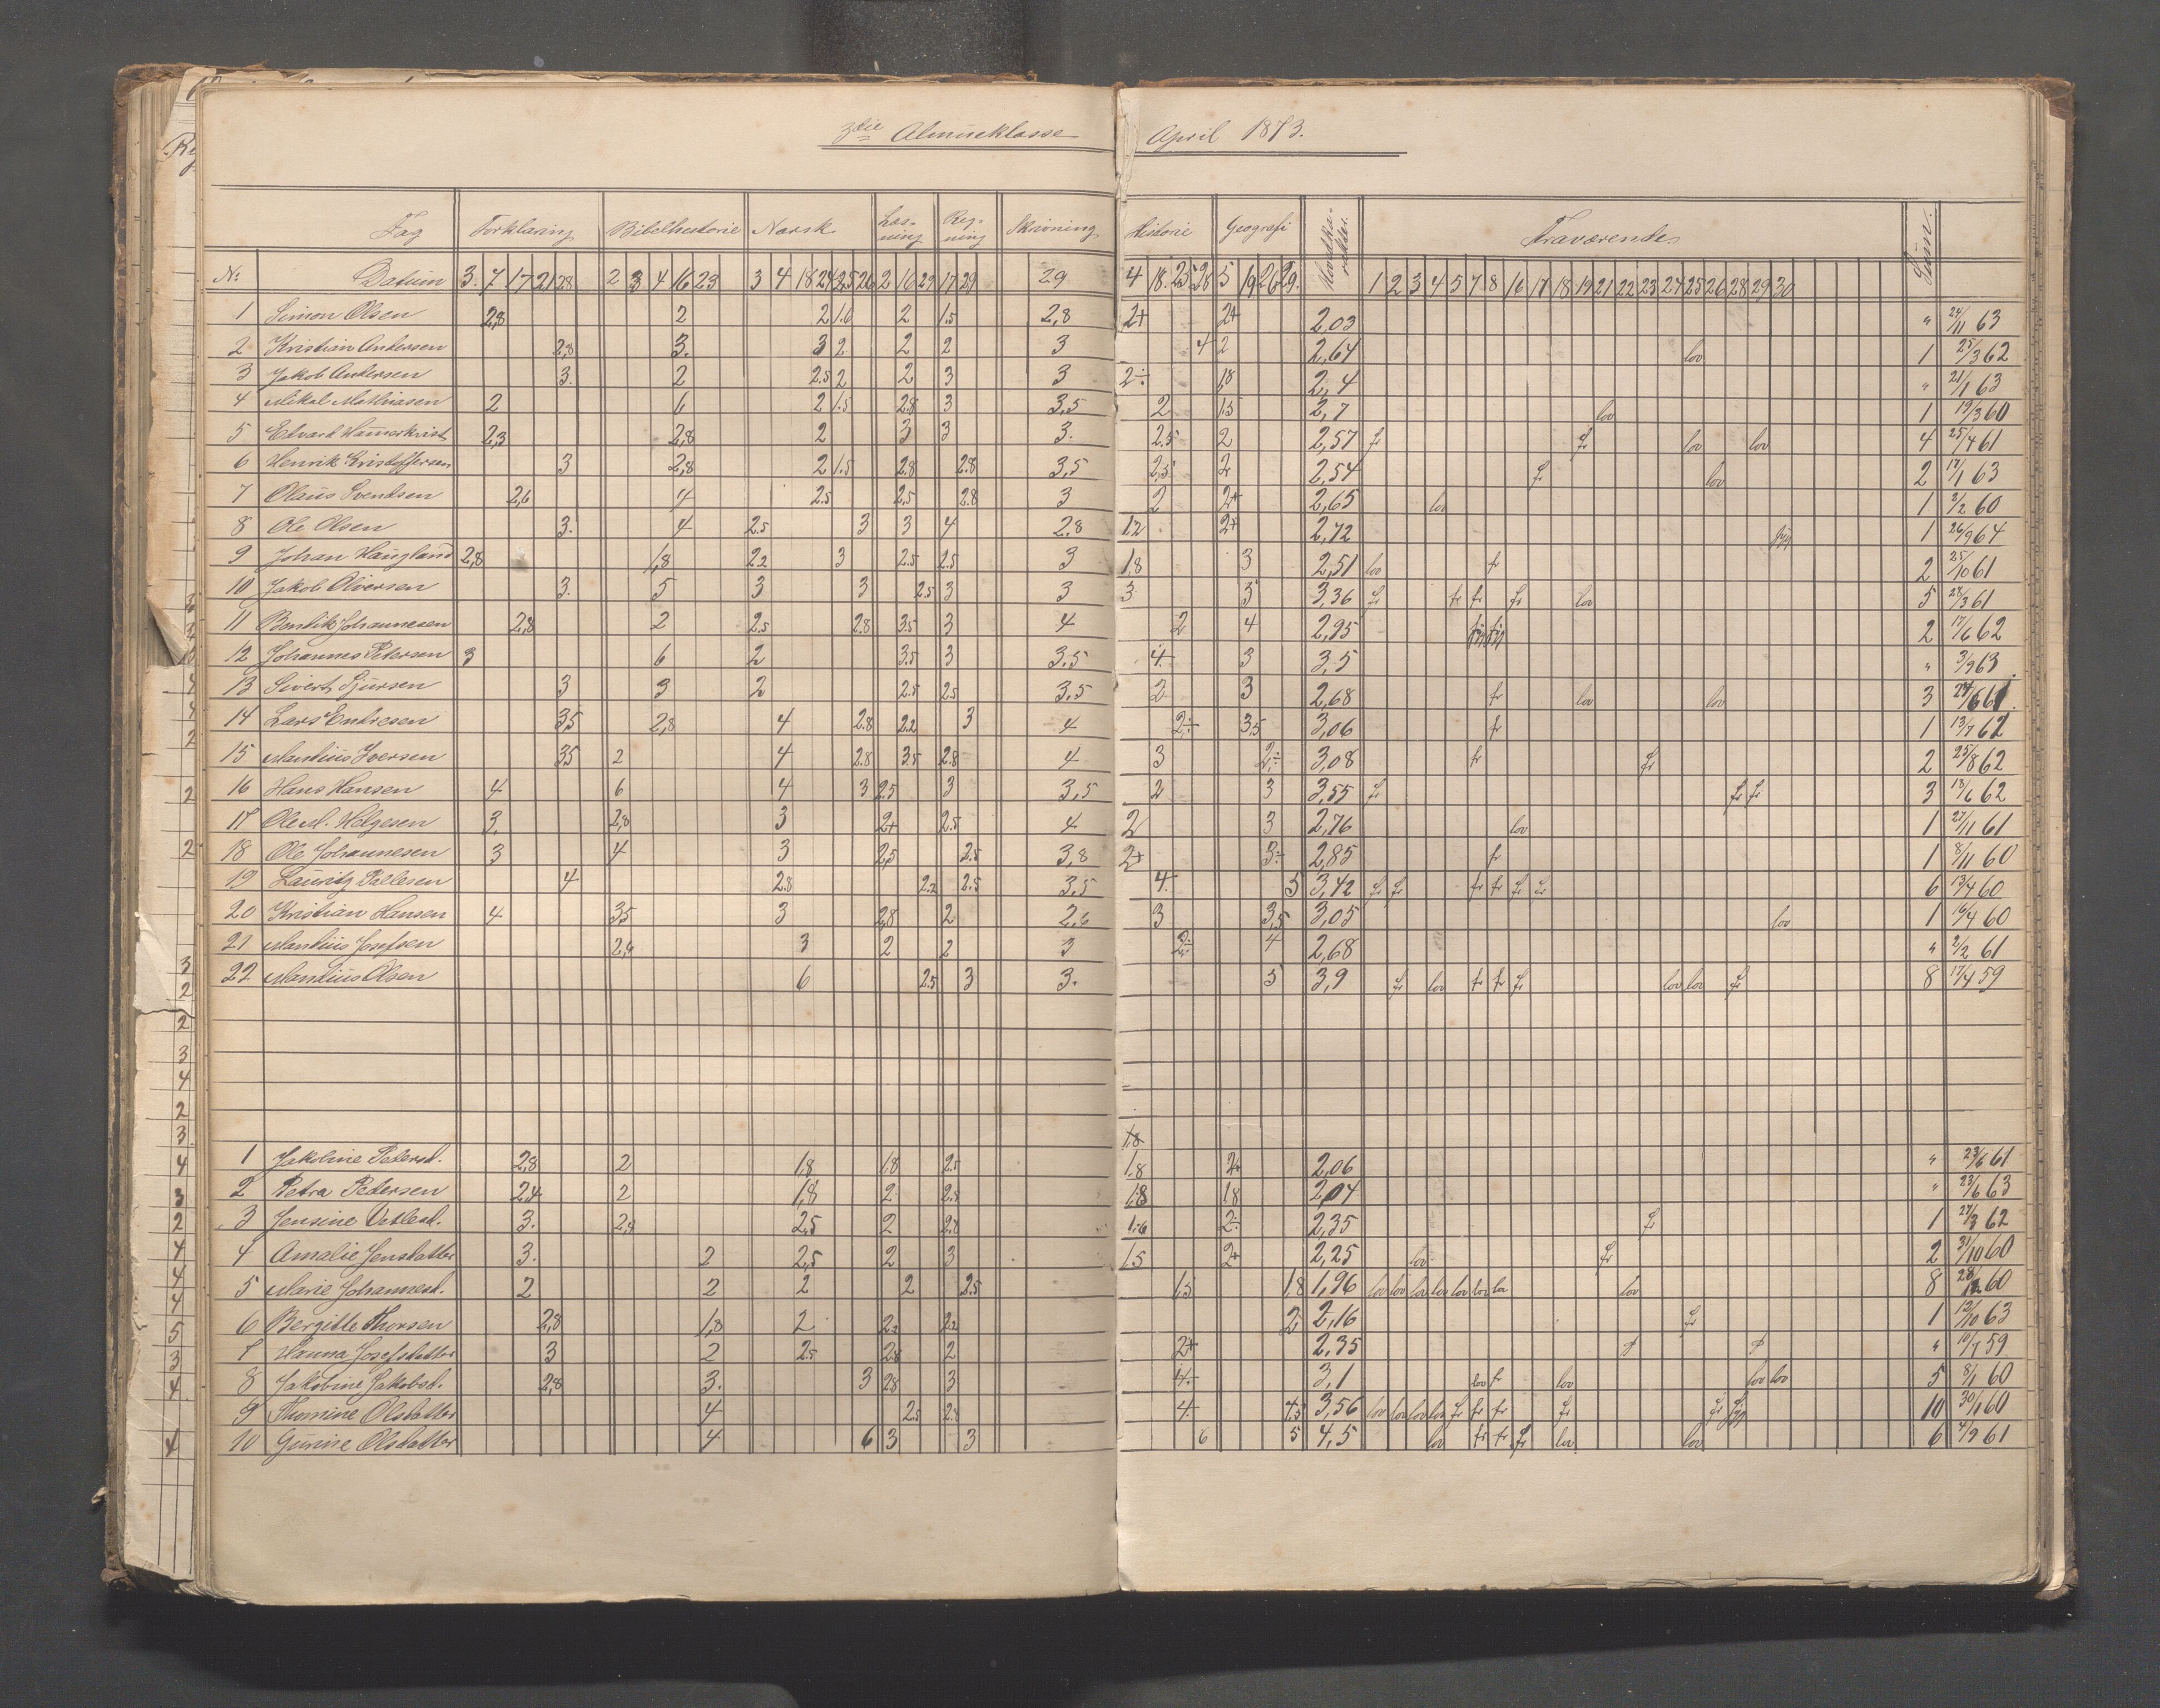 3die Almueklasse April 1873.
Fag Forklaring Bibelhistorie Norsk Læsning Regning Skrivning Historie Geografi Fraværende Sum.
No Datum 3. 7 17 21 28 2 3 4 16 23 3 4 18 24 25 26 2 16 29 17 29 29 4 18. 25 28 5 19 26 29. 1 2 3 4 5 7 8 16 17 18 19 21 22 23 24 25 26 28 29 30
1 Simon Olsen 2,8 2 2 1.6 2 1.5 2,8 2+ 2+ 2,03 " 24/11 63
2 Kristian Andersen 2,8 3. 3 2 2 2 3 4 2 2,64 lov 1 25/3 62
3 Jakob Andersen 3. 2 2.5 2 2 3 3 2÷ 1,8 2,4 " 21/1 63
4 Mikal Mathiasen 2 6 2 1.5 2.8 3 3,5 2 1.5 2,7 lov 1 19/3 60
5 Edvard 2,3 2,8 2 3 3 3. 2.5 2 2,57 fr fr lov lov 4 25/4 61
6 Henrik Kristoffersen 3 2,8 2 1.5 2,8 2.8 3,5 2,5 2 2,54 fr lov 2 17/1 63
7 Olaus Svendsen 2,6 4 2.5 2,5 2.8 3 2 2+ 2,65 lov 1 2/2 60
8 Ole Olsen 3. 4 2.5 3 3 4 2,8 1.2 2+ 2,72 1 26/9 64
9 Johan Haugland 2,8 1,8 2.2 3 2.5 2.5 3 1.8 3 2,51 lov fr 2 25/10 61
10 Jakob Oliversen 3. 5 3 3 2.5 3 3 3 3 3,36 fr fr fr fr lov 5 28/3 61
11 Bendik Johannesen 2,8 2 2.5 2.8 3.5 3 4 2 4 2,95 2 17/6 62
12 Johannes Petersen 3 6 2 3.5 3 3.5 4 3 3,5 " 3/9 63
13 Sivert Sjursen 3 3 2 2.5 2.5 3,5 2 3 2,68 fr lov lov 3 61
14 Lars Endresen 3,5 2,8 4 2.8 2.2 3 4 2÷ 3,5 3,06 fr 1 13/7 62
15 Mandius Iversen 3,5 2 4 2.8 3.5 2.8 4 3 2÷ 3,08 fr fr 2 25/8 62
16 Hans Hansen 4 6 4 3 2.5 3 3,5 2 3 3,55 fr fr fr 3 13/6 62
17 Ole M. Helgesen 3. 2,8 3 2+ 2.5 4 2 3 2,76 lov 1 27/11 61
18 Ole Johannesen 3 4 3 2,5 2.5 3,8 2+ 3÷ 2,85 fr 1 8/11 60
19 Lauritz Pallesen 4 2.8 2.2 2.5 3,5 4. 5 3,42 fr fr fr fr fr fr 6 13/4 60
20 Kristian Hansen 4 3,5 3 2,8 2 2,6 3 3,5 3,05 lov 1 16/4 60
21 Mandius Josefsen 2,4 3 2 2 3 2÷ 4 2,68 " 2/2 61
22 Mandius Olsen 6 2.5 3 3. 5 3,9 fr lov fr fr fr lov lov fr 8 17/4 59
1.8
1 Jakobine Petersd. 2,8 2 1,8 1.8 2.5 1.8 2+ 2,06 " 23/6 61
2 Petra Petersen 2,4 2 1,8 2 2.5 1.8 1.8 2,04 " 23/6 63
3 Jensine 3. 2,8 2.5 2 2.8 1.6 2÷ 2,35 fr 1 27/3 62
4 Amalie Jensdatter 3. 2 2,5 2 3 1.5 2+ 2,25 lov fr 2 31/10 60
5 Marie Johannesd. 2 2 2 2 2.5 1,5 1.8 1,96 lov lov lov lov lov lov lov lov 8 28/12 60
6 Bergitte Thorsen 2,8 1,8 2 2.2 2.2 2 2,16 fr 1 12/10 63
7 Hanna Josefsdatter 3 2 2.5 2.8 2 2+ 2,35 " 10/7 59
8 Jakobine Jakobsd. 2,8 3. 3 2.8 3 4 3,1 lov fr lov lov lov 5 8/1 60
9 Thomine Olsdatter 4 2.5 2.8 4. 4.5 3,56 lov lov lov lov fr fr fr fr fr 10 30/1 60
10 Gunise Olsdatter 4 6 3 3 6 5 4,5 lov fr fr fr lov lov 6 4/9 61